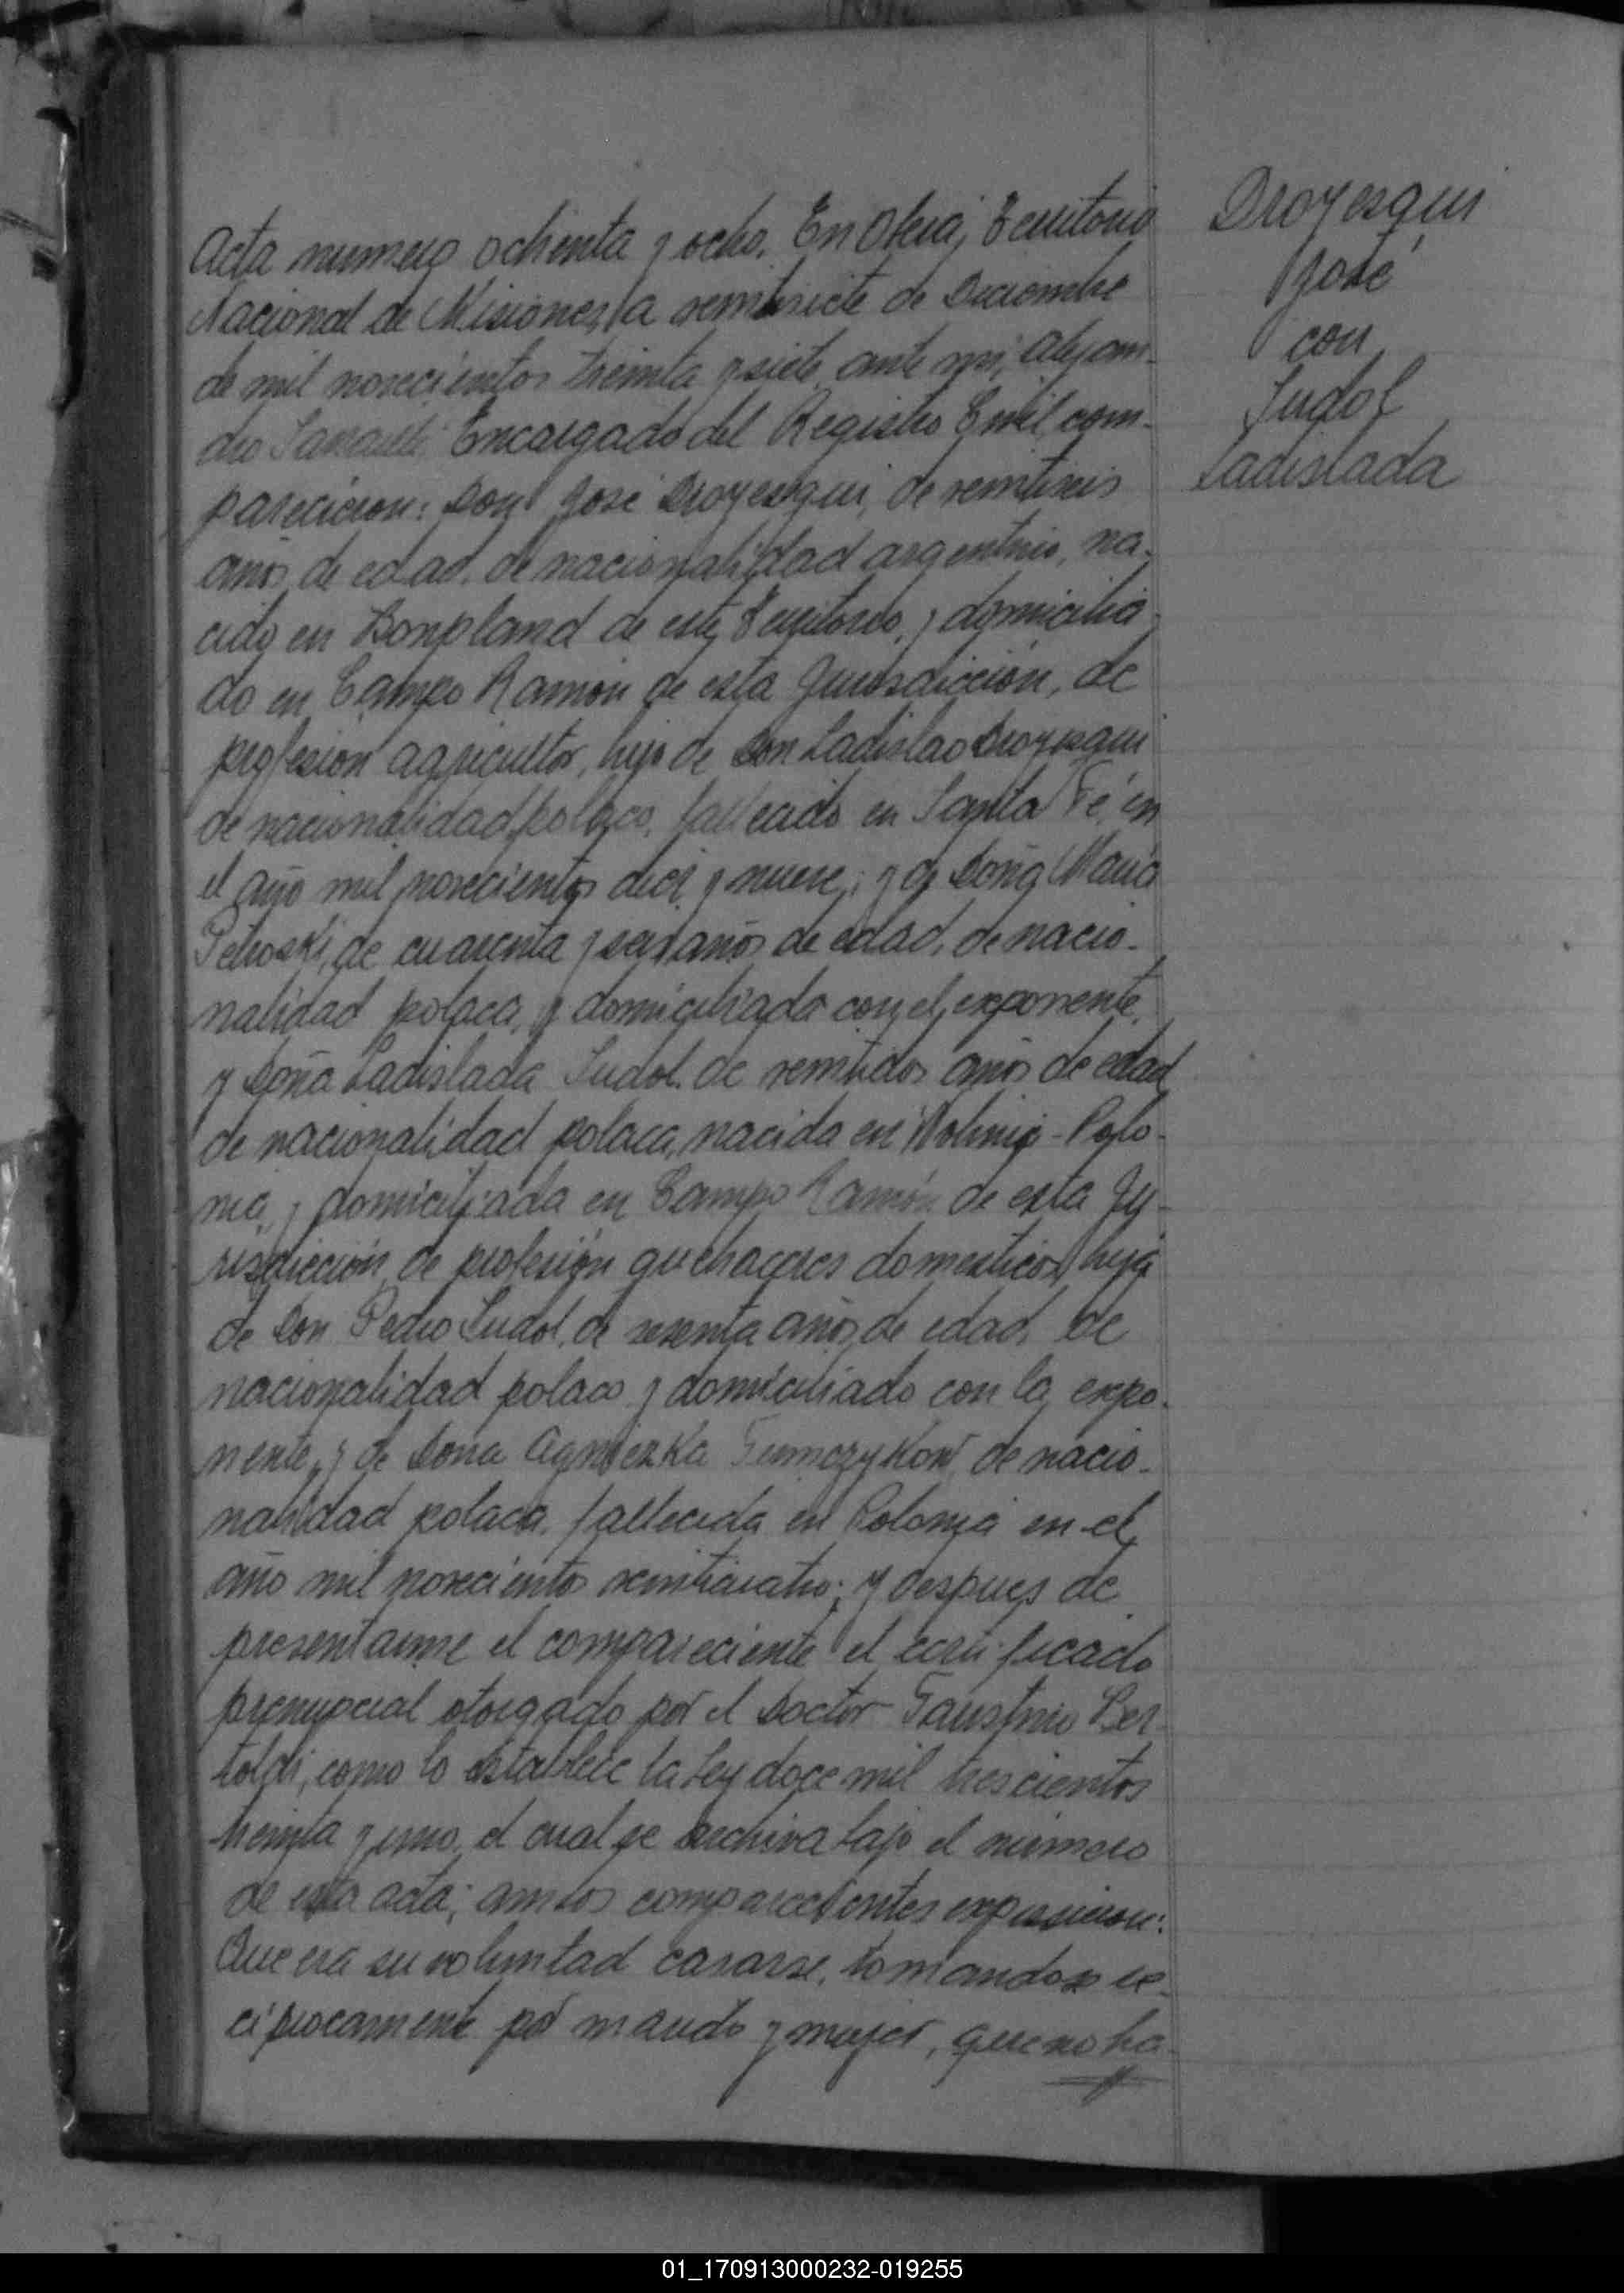 Acta numero ochenta y ocho. En Oberá, Territorio
Nacional de Misiones, a veintisiete de Diciembre
de mil novecientos treinta y siete, ante mi, Alejan-
dro Encargado del Registro Civil, com-
parecieron: Don José Droyesqui, de veintiseis
años de edad, de nacionalidad argentino, na-
cido en Bonpland de este Territorio, y domicilia-
do en Campo Ramón de esta Jurisdicción, de
profesión agricultor, hijo de Don Ladislao Droyesqui
de nacionalidad polaco, fallecido en Santa Fé, en
el año mil novecientos diez y nueve; y de Doña Maria
Petroski, de cuarenta y seis años de edad, de nacio-
nalidad polaca, y domiciliada con el exponente,
y Doña Ladislada Sudol, de veintidos años de edad,
de nacionalidad polaca, nacida en Wolinia - Polo-
nia, y domiciliada en Campo Ramón de esta Ju-
risdicción, de profesión quehaceres domesticos, hija
de Don Pedro Sudol, de sesenta años de edad, de
nacionalidad polaco y domiciliado con la expo-
nente, y de Doña Agnieszka de nacio-
nalidad polaca, fallecida en Polonia en el
año mil novecientos veinticuatro; y despues de
presentarme el compareciente el certificado
prenupcial otorgado por el Doctor Faustino Ber-
toldi, como lo establece la Ley doce mil trescientos
treinta y uno, el cual se archiva bajo el número
de esta acta; ambos comparecientes expusieron:
Que era su voluntad casarse, tomandose re-
ciprocamente por marido y mujer, que no ha-
Droyesqui
José
con
Sudol
Ladislada
01_170913000232-019255